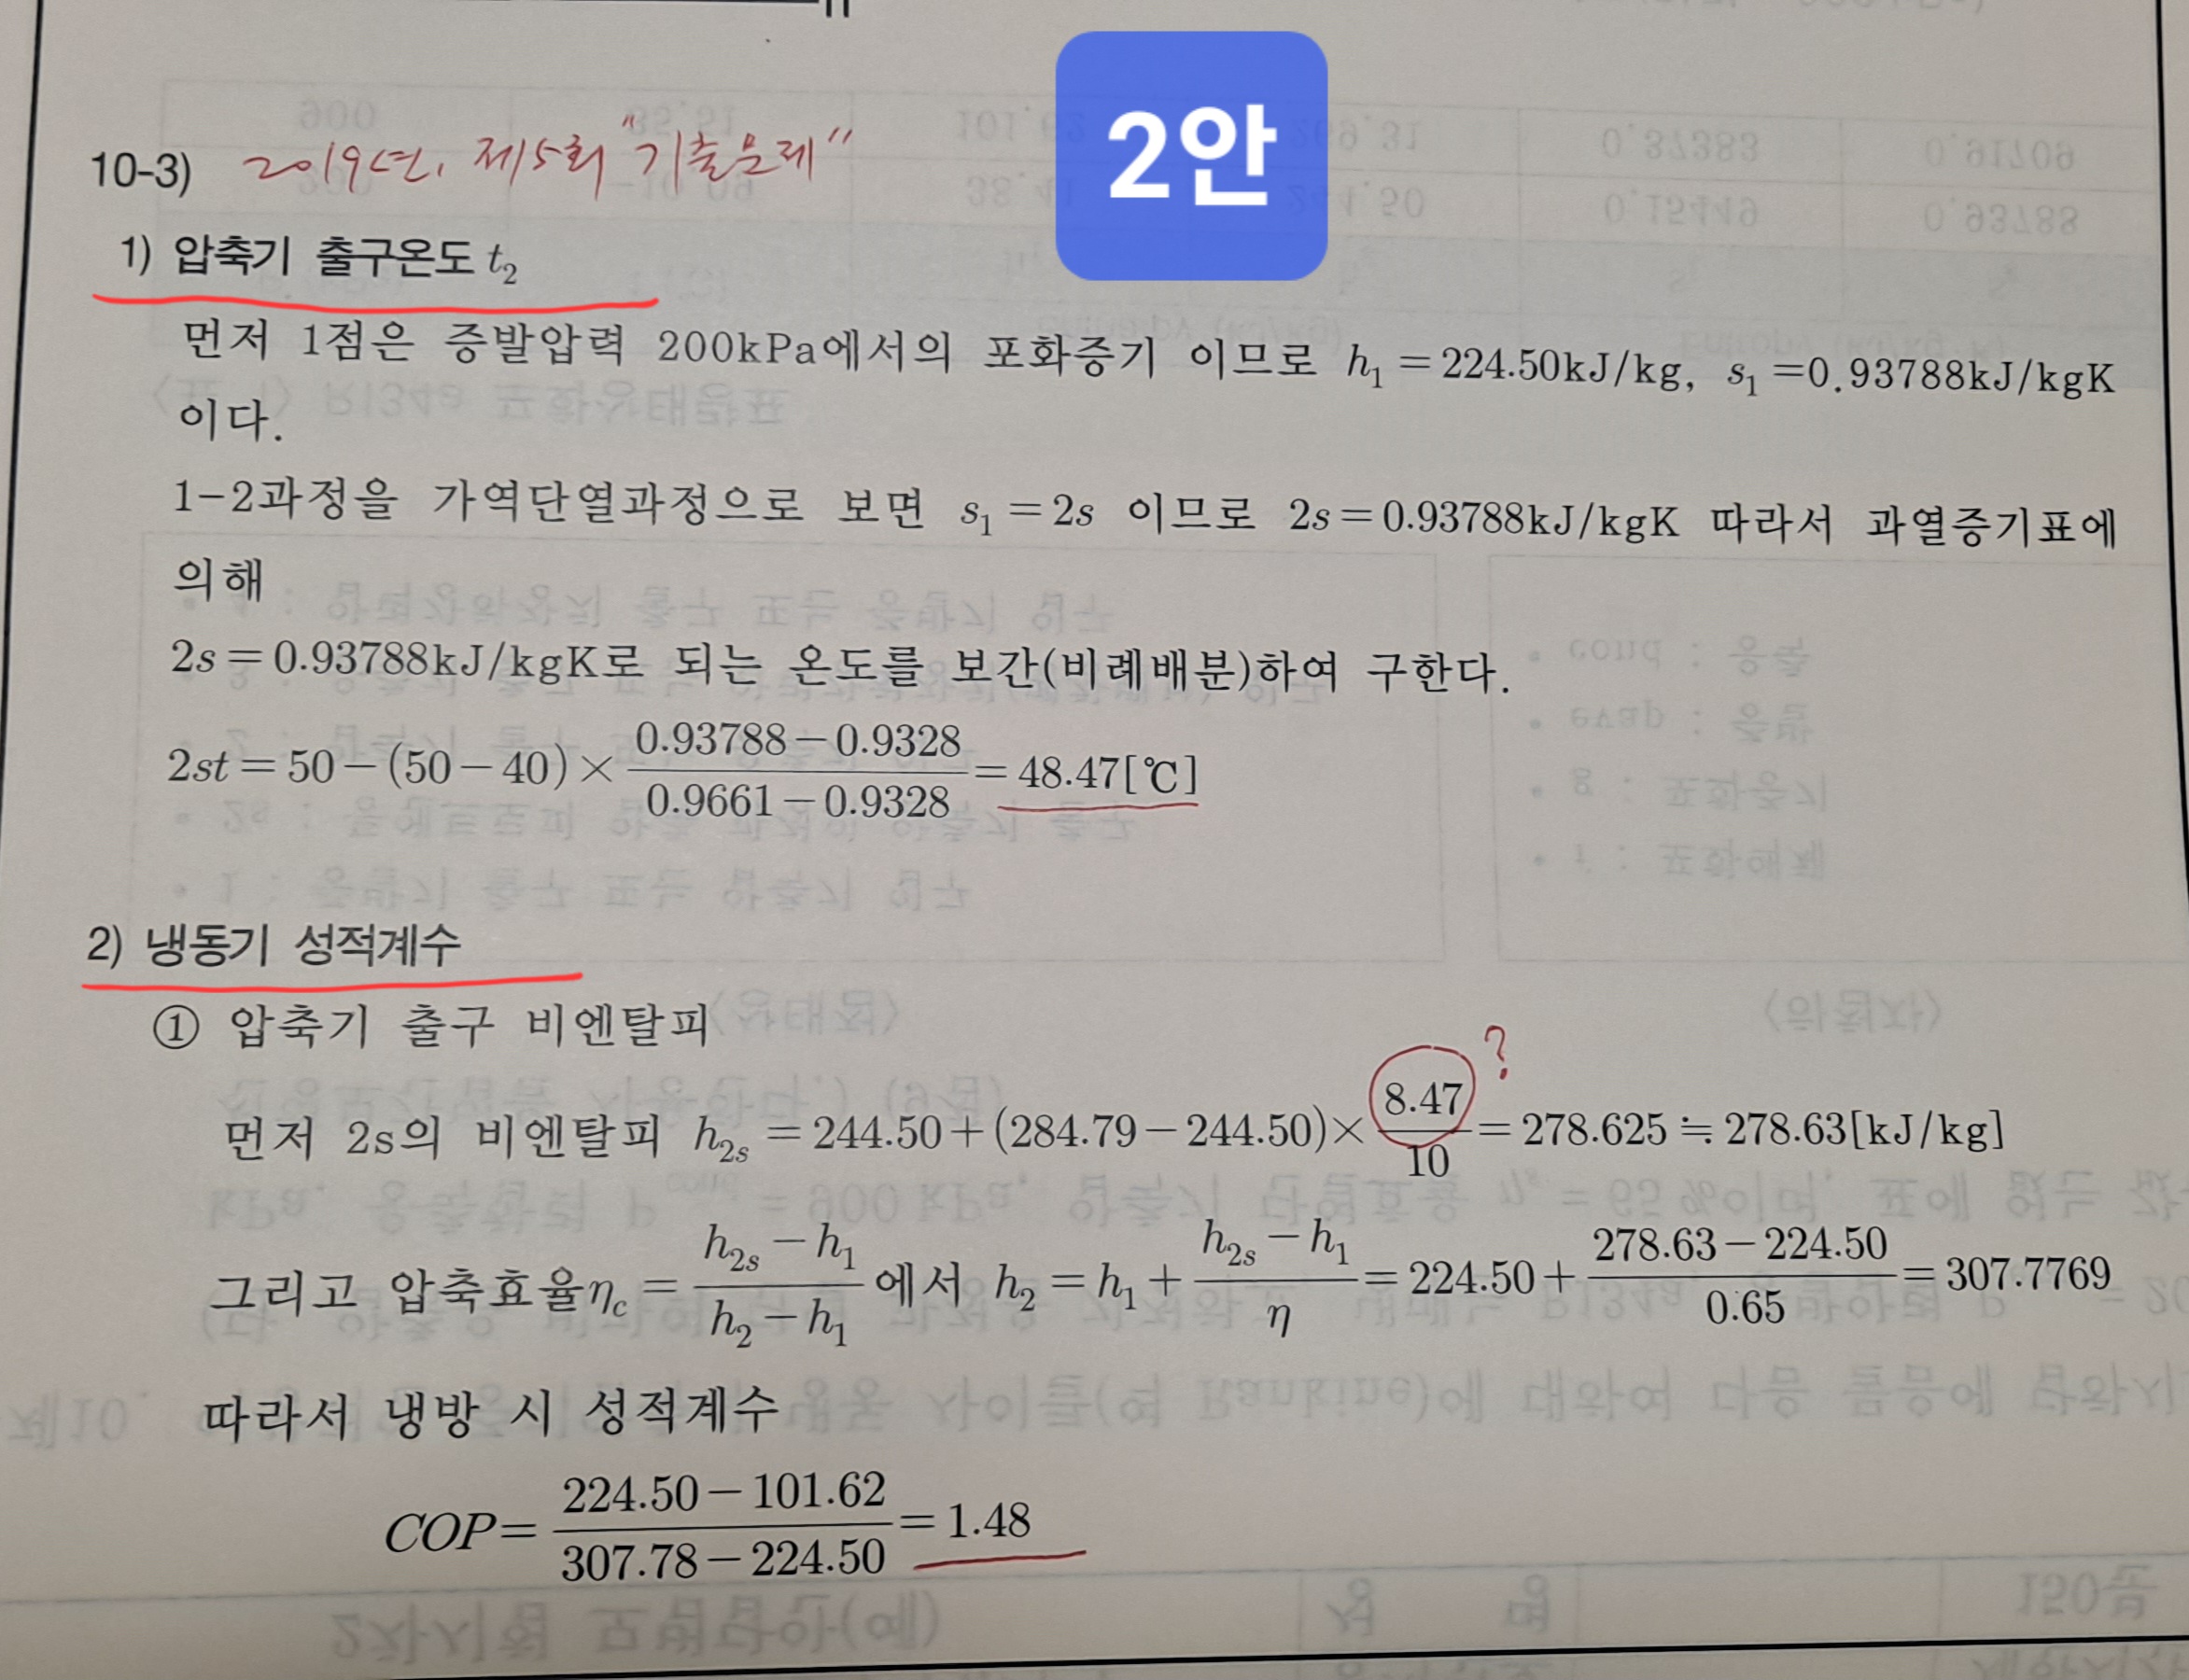 2안
10-3) 2019년, 제5회 "기출문제"
1) 압축기 출구온도 t₂
먼저 1점은 증발압력 200kPa에서의 포화증기 이므로 h₁ = 224.50kJ/kg, s₁ =0.93788kJ/kgK
이다.
1-2과정을 가역단열과정으로 보면 s₁ = 2s 이므로 2s = 0.93788kJ/kgK 따라서 과열증기표에
의해
2s = 0.93788kJ/kgK로 되는 온도를 보간(비례배분)하여 구한다.
2st = 50 − (50 − 40) × (0.93788 − 0.9328)/(0.9661 − 0.9328) = 48.47[℃]
2) 냉동기 성적계수
① 압축기 출구 비엔탈피
?
먼저 2s의 비엔탈피 h₂ₛ = 244.50 + (284.79 − 244.50) × 8.47/10 = 278.625 ≒ 278.63[kJ/kg]
그리고 압축효율 η_c = (h₂ₛ − h₁)/(h₂ − h₁) 에서 h₂ = h₁ + (h₂ₛ − h₁)/η = 224.50 + (278.63 − 224.50)/0.65 = 307.7769
따라서 냉방 시 성적계수
COP = (224.50 − 101.62)/(307.78 − 224.50) = 1.48